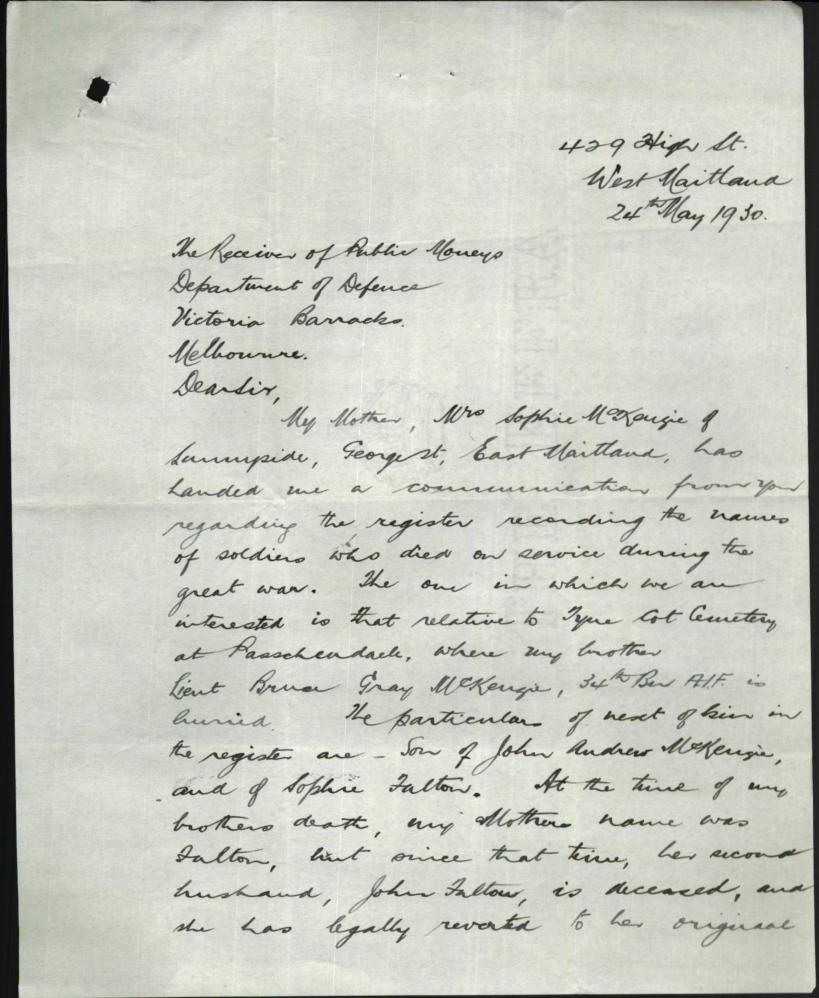 429 High St.
West Maitland
24th May 1930.
The Receiver of Public Moneys
Department of Defence
Victoria Barracks.
Melbourne.
Dear Sir,
My Mother, Mrs Sophie McKenzie of
Sunnyside, George St, East Maitland, has
handed me a communication from you
regarding the register recording the names
of soldiers who died on service during the
great war. The one in which we are
interested is that relative to Tyne Cot Cemetery
at Passchendaele, where my brother
Lieut Bruce Gray McKenzie, 34th Bn A.I.F. is
buried. The particulars of next of kin in
the register are - Son of John Andrew McKenzie,
and of Sophie Falton. At the time of my
brothers death, my Mothers name was
Falton, but since that time, her second
husband, John Falton, is deceased, and
she has legally reverted to her original